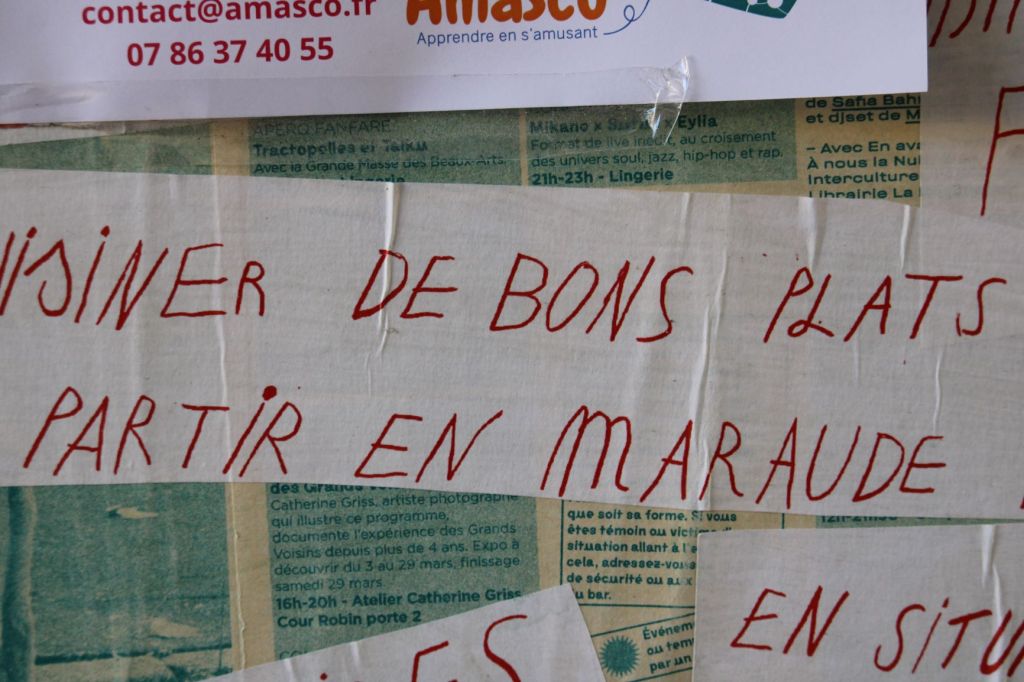 contact@amasco.fr
07 86 37 40 55
Amasco
Apprendre en s'amusant
APÉRO FANFARE
Tractopelles et Taïku
Avec la Grande Masse des Beaux-Arts.
Lingerie
Mikano x Eylia
Format de live inédit, au croisement
des univers soul, jazz, hip-hop et rap.
21h-23h - Lingerie
de Safia Bah
et djset de M
– Avec En ava
À nous la Nui
Interculture
Librairie La
UISINER DE BONS PLATS
PARTIR EN MARAUDE
des Grands
Catherine Griss, artiste photographe
qui illustre ce programme,
documente l'expérience des Grands
Voisins depuis plus de 4 ans. Expo à
découvrir du 3 au 29 mars, finissage
samedi 29 mars.
16h-20h - Atelier Catherine Griss
Cour Robin porte 2
que soit sa forme. Si vous
êtes témoin ou victime d'
situation allant à l'e
cela, adressez-vous
de sécurité ou aux
du bar.
Événem
ou tem
par un
EN SITU
ES